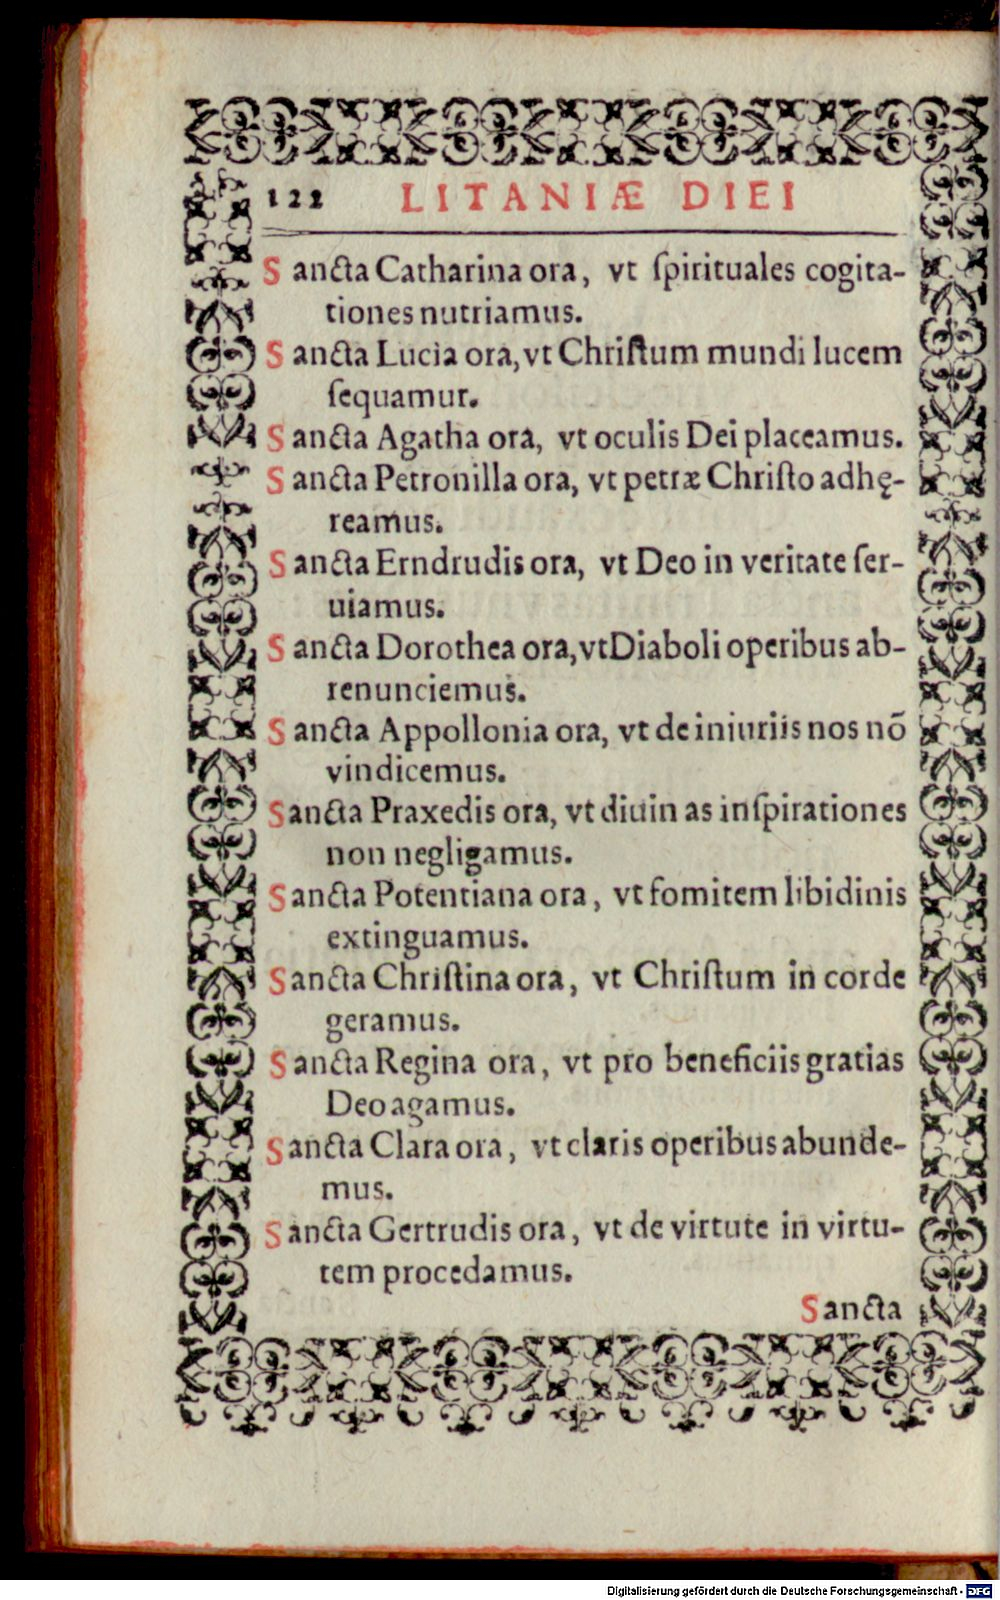 122 LITANIÆ DIEI
Sancta Catharina ora, vt ſpirituales cogita-
tiones nutriamus.
Sancta Lucia ora, vt Chriſtum mundi lucem
ſequamur.
Sancta Agatha ora, vt oculis Dei placeamus.
Sancta Petronilla ora, vt petræ Chriſto adhę-
reamus.
Sancta Erndrudis ora, vt Deo in veritate ſer-
uiamus.
Sancta Dorothea ora, vt Diaboli operibus ab-
renunciemus.
Sancta Appollonia ora, vt de iniuriis nos nõ
vindicemus.
Sancta Praxedis ora, vt diuin as inſpirationes
non negligamus.
Sancta Potentiana ora, vt fomitem libidinis
extinguamus.
Sancta Chriſtina ora, vt Chriſtum in corde
geramus.
Sancta Regina ora, vt pro beneficiis gratias
Deo agamus.
Sancta Clara ora, vt claris operibus abunde-
mus.
Sancta Gertrudis ora, vt de virtute in virtu-
tem procedamus.
Sancta
Digitalisierung gefördert durch die Deutsche Forschungsgemeinschaft - DFG